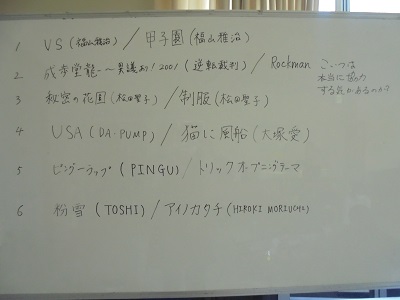 1 VS (福山雅治) / 甲子園 (福山雅治)
2 成歩堂龍一~異議あり!2001 (逆転裁判) / Rockman こいつは
本当に協力
する気があるのか?
3 秘密の花園 (松田聖子) / 制服 (松田聖子)
4 USA (DA-PUMP) / 猫に風船 (大塚愛)
5 ピングーラップ (PINGU) / トリックオープニングテーマ
6 粉雪 (TOSHI) / アイノカタチ (HIROKI MORIUCHI)